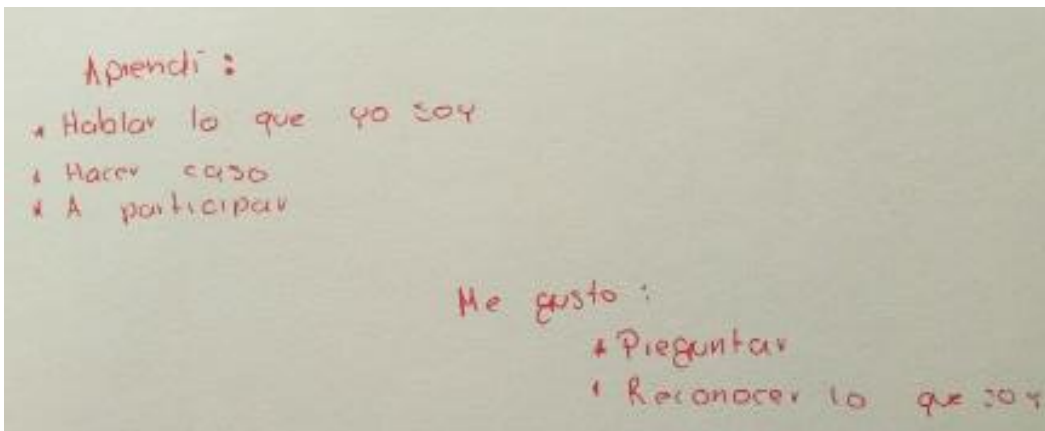 Aprendi :
* Hablar lo que yo soy
* Hacer caso
* A participar
Me gusto :
* Preguntar
* Reconocer lo que soy